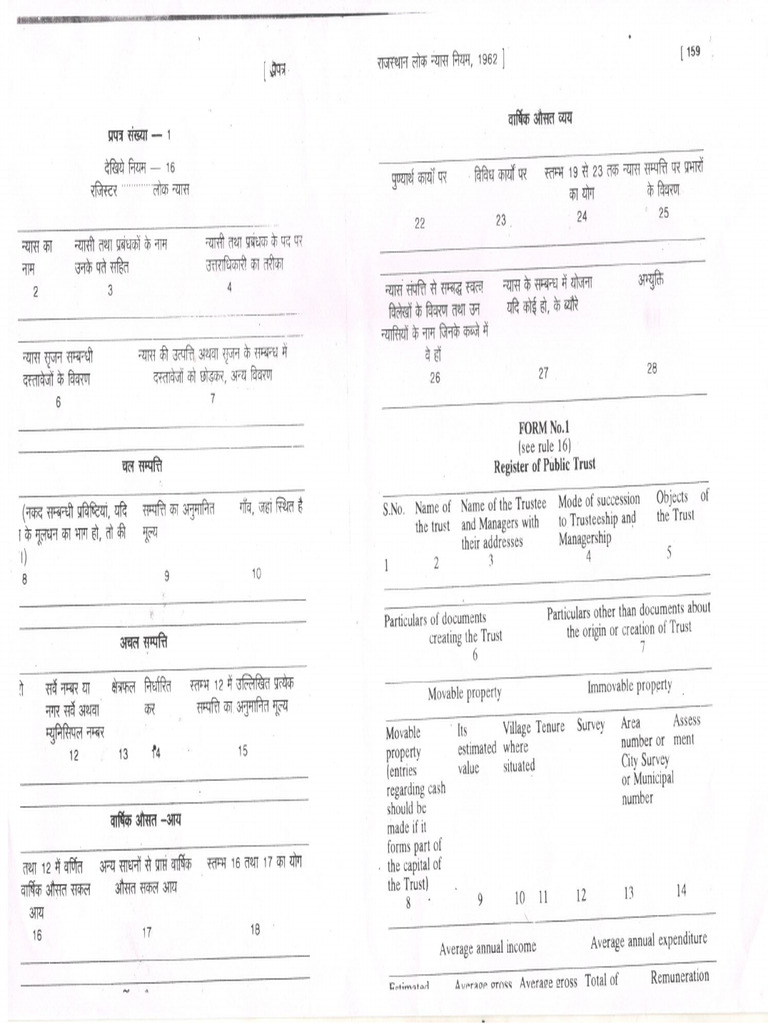 [ प्रपत्र
प्रपत्र संख्या — 1
देखिये नियम — 16
रजिस्टर ............ लोक न्यास
न्यास का न्यासी तथा प्रबंधकों के नाम न्यासी तथा प्रबंधक के पद पर
नाम उनके पते सहित उत्तराधिकारी का तरीका
2 3 4
न्यास सृजन सम्बन्धी न्यास की उत्पत्ति अथवा सृजन के सम्बन्ध में
दस्तावेजों के विवरण दस्तावेजों को छोड़कर, अन्य विवरण
6 7
चल सम्पत्ति
(नकद सम्बन्धी प्रविष्टियां, यदि सम्पत्ति का अनुमानित गाँव, जहां स्थित है
के मूलधन का भाग हो, तो की मूल्य
8 9 10
अचल सम्पत्ति
सर्वे नम्बर या क्षेत्रफल निर्धारित स्तम्भ 12 में उल्लिखित प्रत्येक
नगर सर्वे अथवा कर सम्पत्ति का अनुमानित मूल्य
म्युनिसिपल नम्बर
12 13 14 15
वार्षिक औसत –आय
तथा 12 में वर्णित अन्य साधनों से प्राप्त वार्षिक स्तम्भ 16 तथा 17 का योग
वार्षिक औसत सकल औसत सकल आय
आय
16 17 18
राजस्थान लोक न्यास नियम, 1962 ] [ 159
वार्षिक औसत व्यय
पुण्यार्थ कार्यों पर विविध कार्यों पर स्तम्भ 19 से 23 तक न्यास सम्पत्ति पर प्रभारों
का योग के विवरण
22 23 24 25
न्यास संपत्ति से सम्बद्ध स्वत्व न्यास के सम्बन्ध में योजना अभ्युक्ति
विलेखों के विवरण तथा उन यदि कोई हो, के ब्यौरे
न्यासियों के नाम जिनके कब्जे में
वे हों
26 27 28
FORM No.1
(see rule 16)
Register of Public Trust
S.No. Name of Name of the Trustee Mode of succession Objects of
the trust and Managers with to Trusteeship and the Trust
their addresses Managership
1 2 3 4 5
Particulars of documents Particulars other than documents about
creating the Trust the origin or creation of Trust
6 7
Movable property Immovable property
Movable Its Village Tenure Survey Area Assess
property estimated where number or ment
(entries value situated City Survey
regarding cash or Municipal
should be number
made if it
forms part of
the capital of
the Trust)
8 9 10 11 12 13 14
Average annual income Average annual expenditure
Estimated Average gross Average gross Total of Remuneration